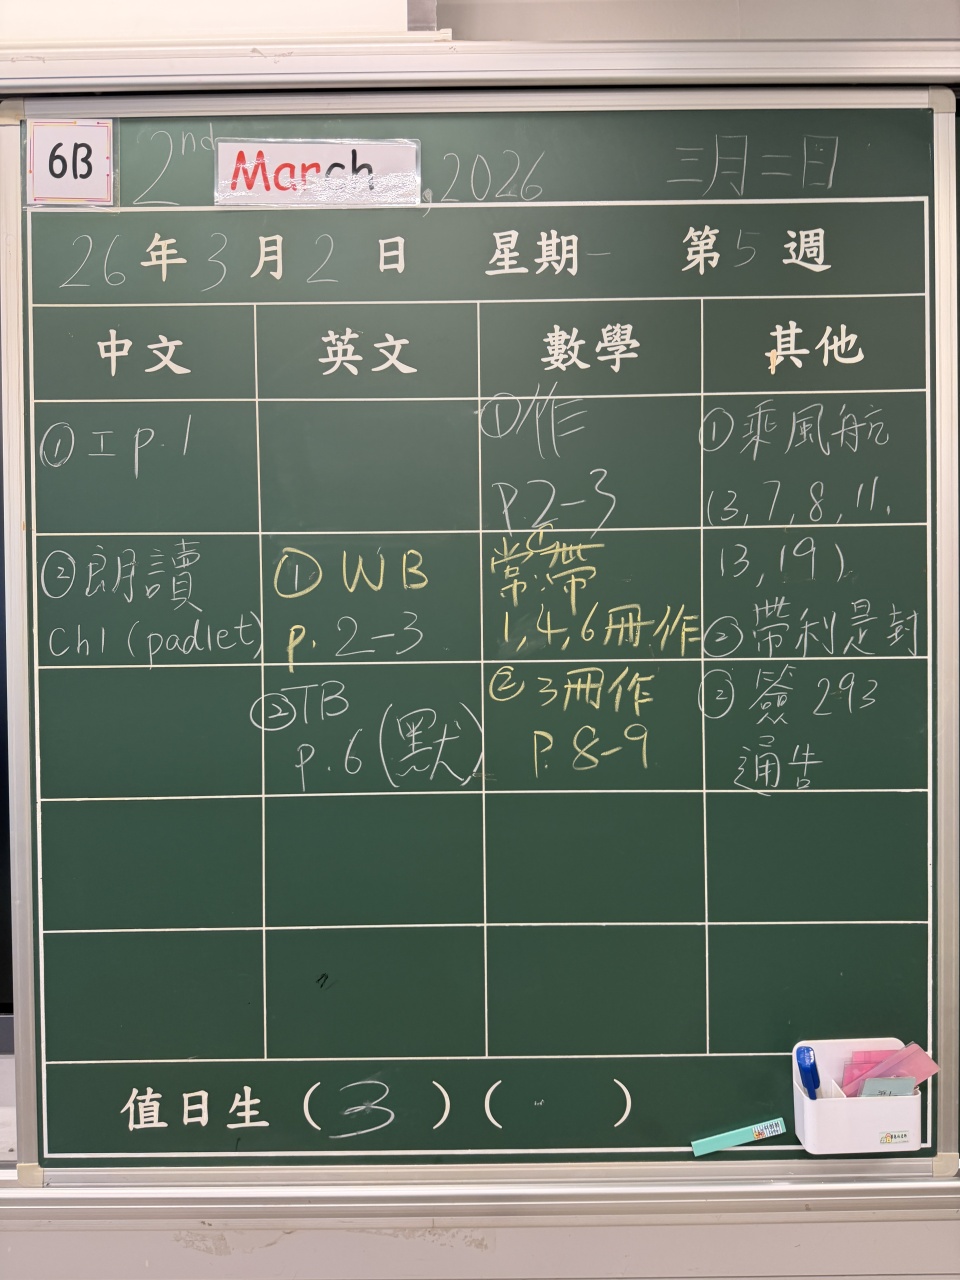 6B 2nd March, 2026 三月二日
26年3月2日 星期一 第5週
中文 英文 數學 其他
① 工 p.1
② 朗讀
Ch1 (padlet)
① WB
p. 2-3
② TB
p.6 (默)
① 作
P.2-3
常帶
1, 4, 6冊作
② 3冊作
P. 8-9
① 乘風航
(3, 7, 8, 11,
13, 19)
② 帶利是封
② 簽 293
通告
值日生 (3) ( )